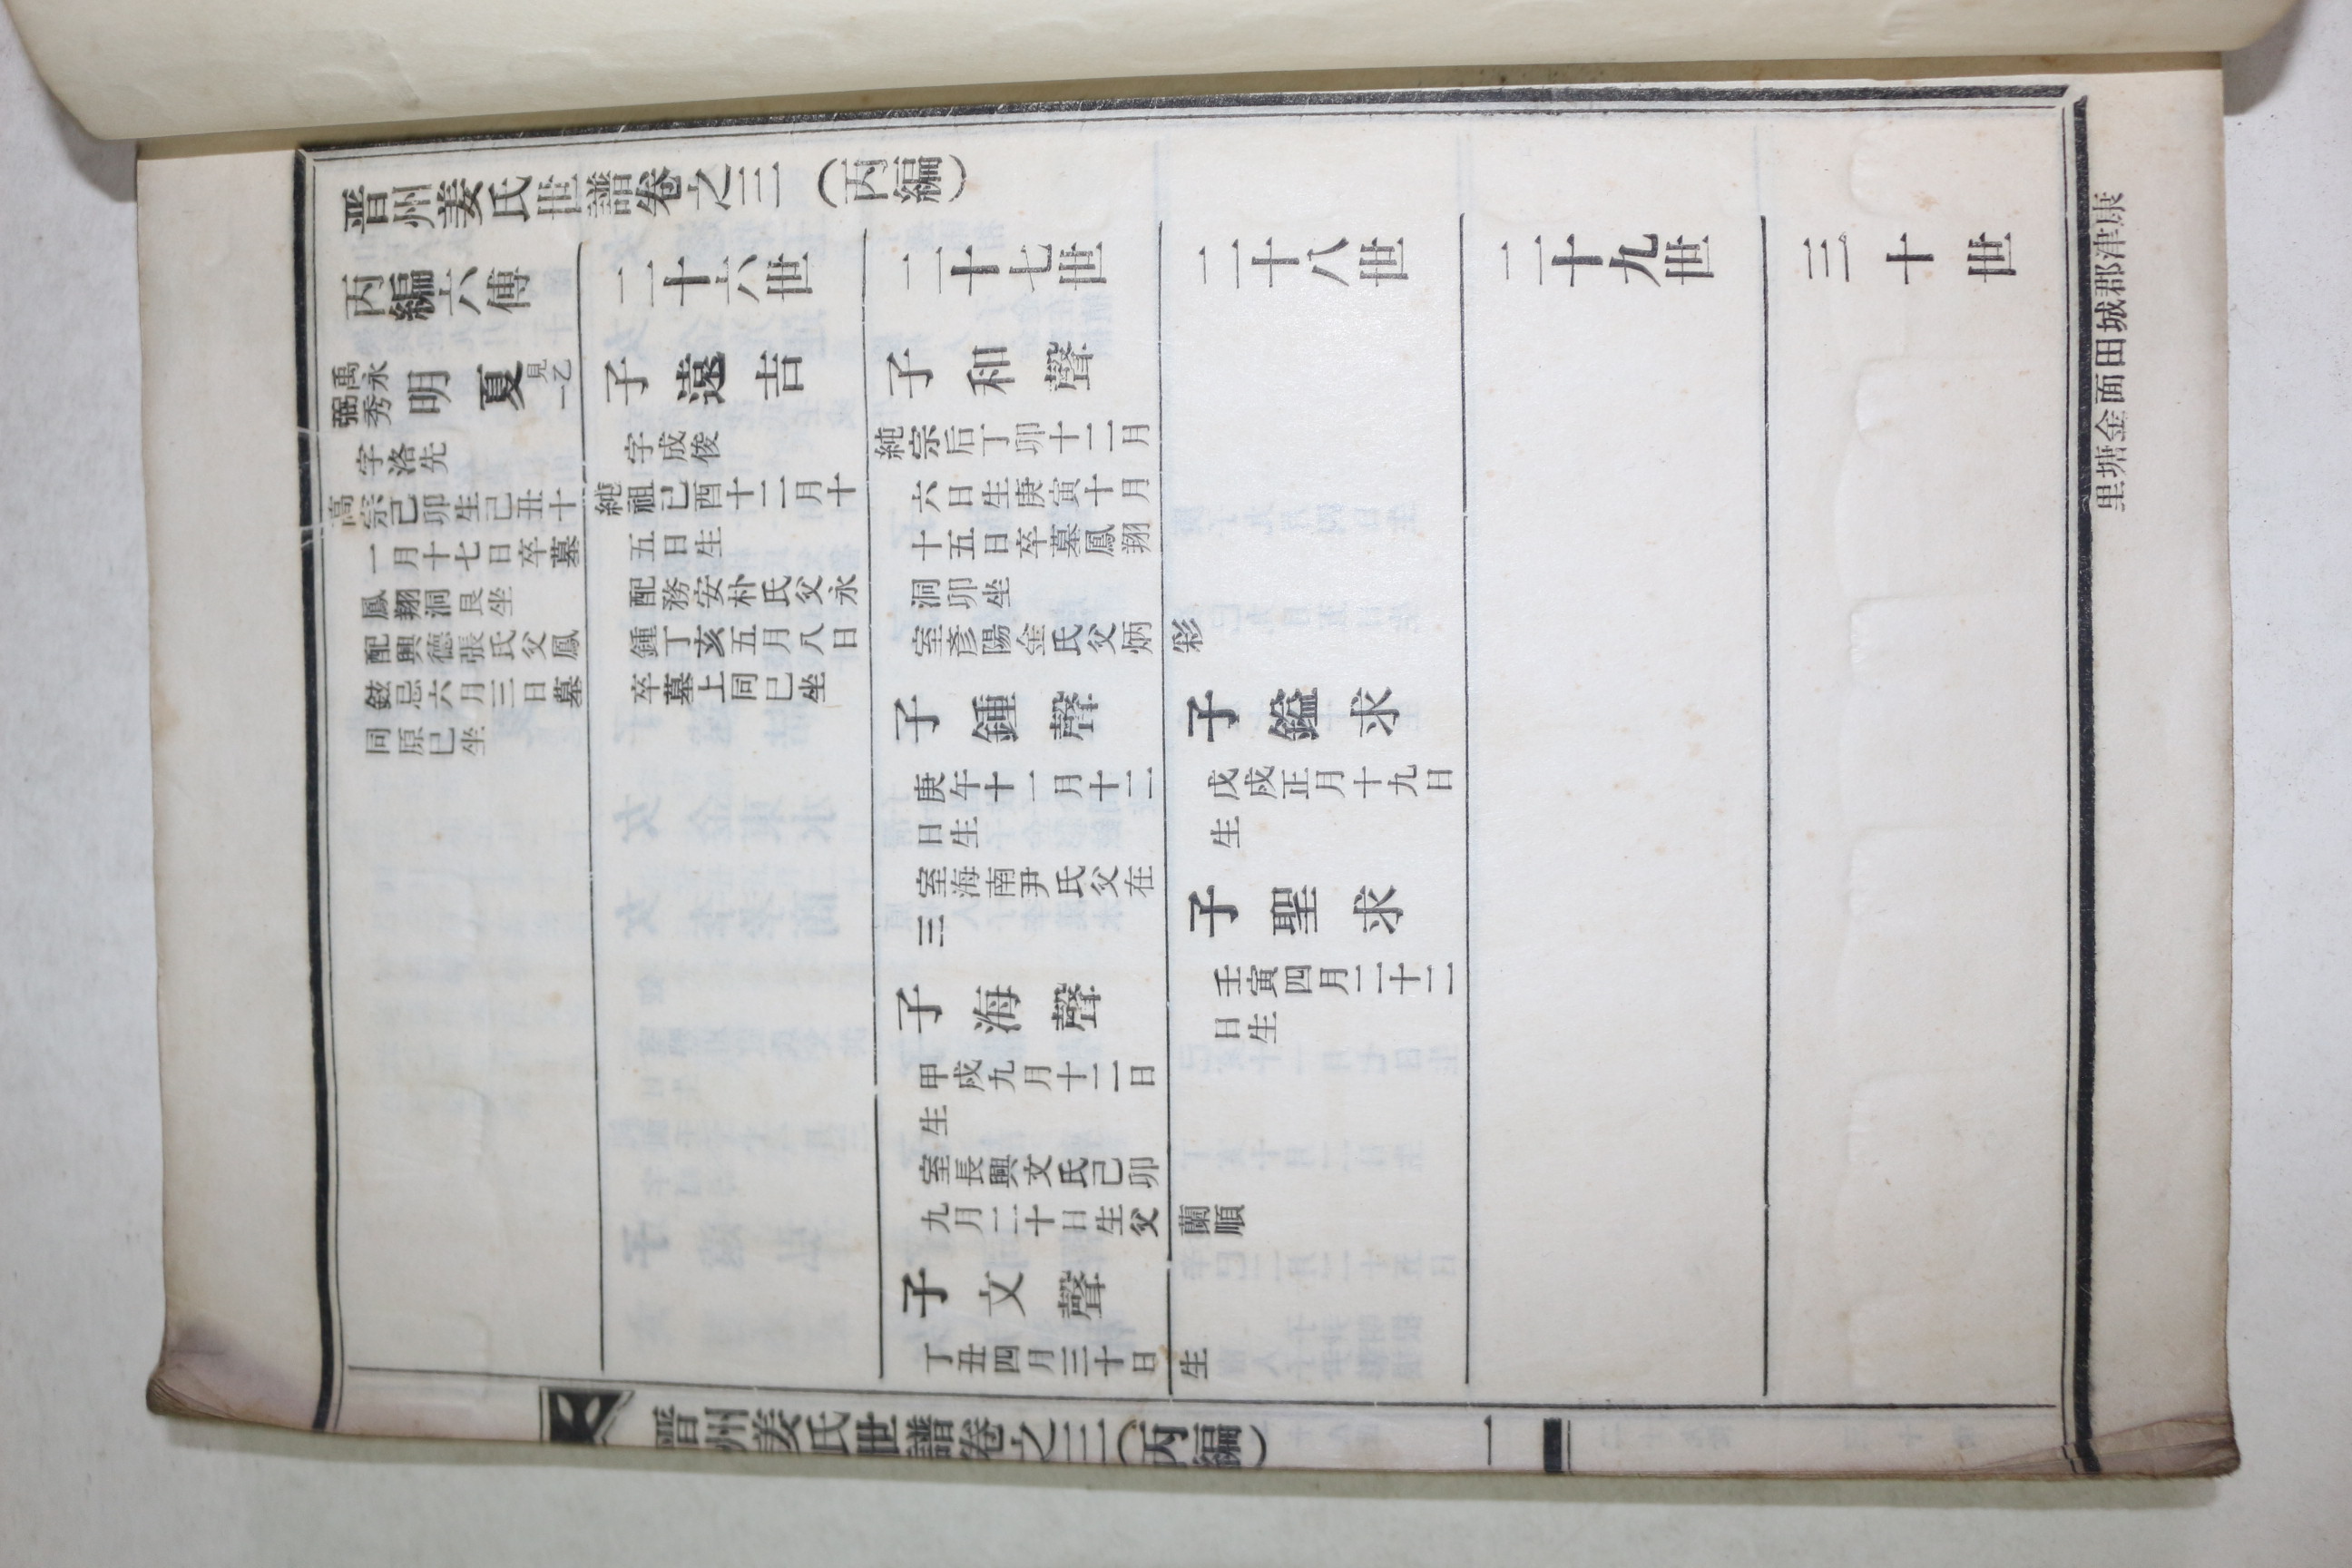 晋州姜氏世譜卷之三(丙編)
丙編六傳
二十六世
二十七世
二十八世
二十九世
三十世
禹永
弼秀
明夏
見乙
一
字洛先
高宗己卯生己丑十
一月十七日卒墓
鳳翔洞艮坐
配興德張氏父鳳
鉉忌六月三日墓
同原巳坐
子遠吉
字成俊
純祖已酉十二月十
五日生
配務安朴氏父永
鍾丁亥五月八日
卒墓上同巳坐
子和聲
純宗后丁卯十二月
六日生庚寅十月
十五日卒墓鳳翔
洞卯坐
室彦陽金氏父炳彩
子鍾聲
庚午十一月十二
日生
室海南尹氏父在
三
子鎰求
戊戍正月十九日
生
子聖求
壬寅四月二十二
日生
子海聲
甲戍九月十二日
生
室長興文氏己卯
九月二十日生父蘭順
子文聲
丁丑四月三十日生
晋州姜氏世譜卷之三(丙編)
一
康津郡城田面金塘里